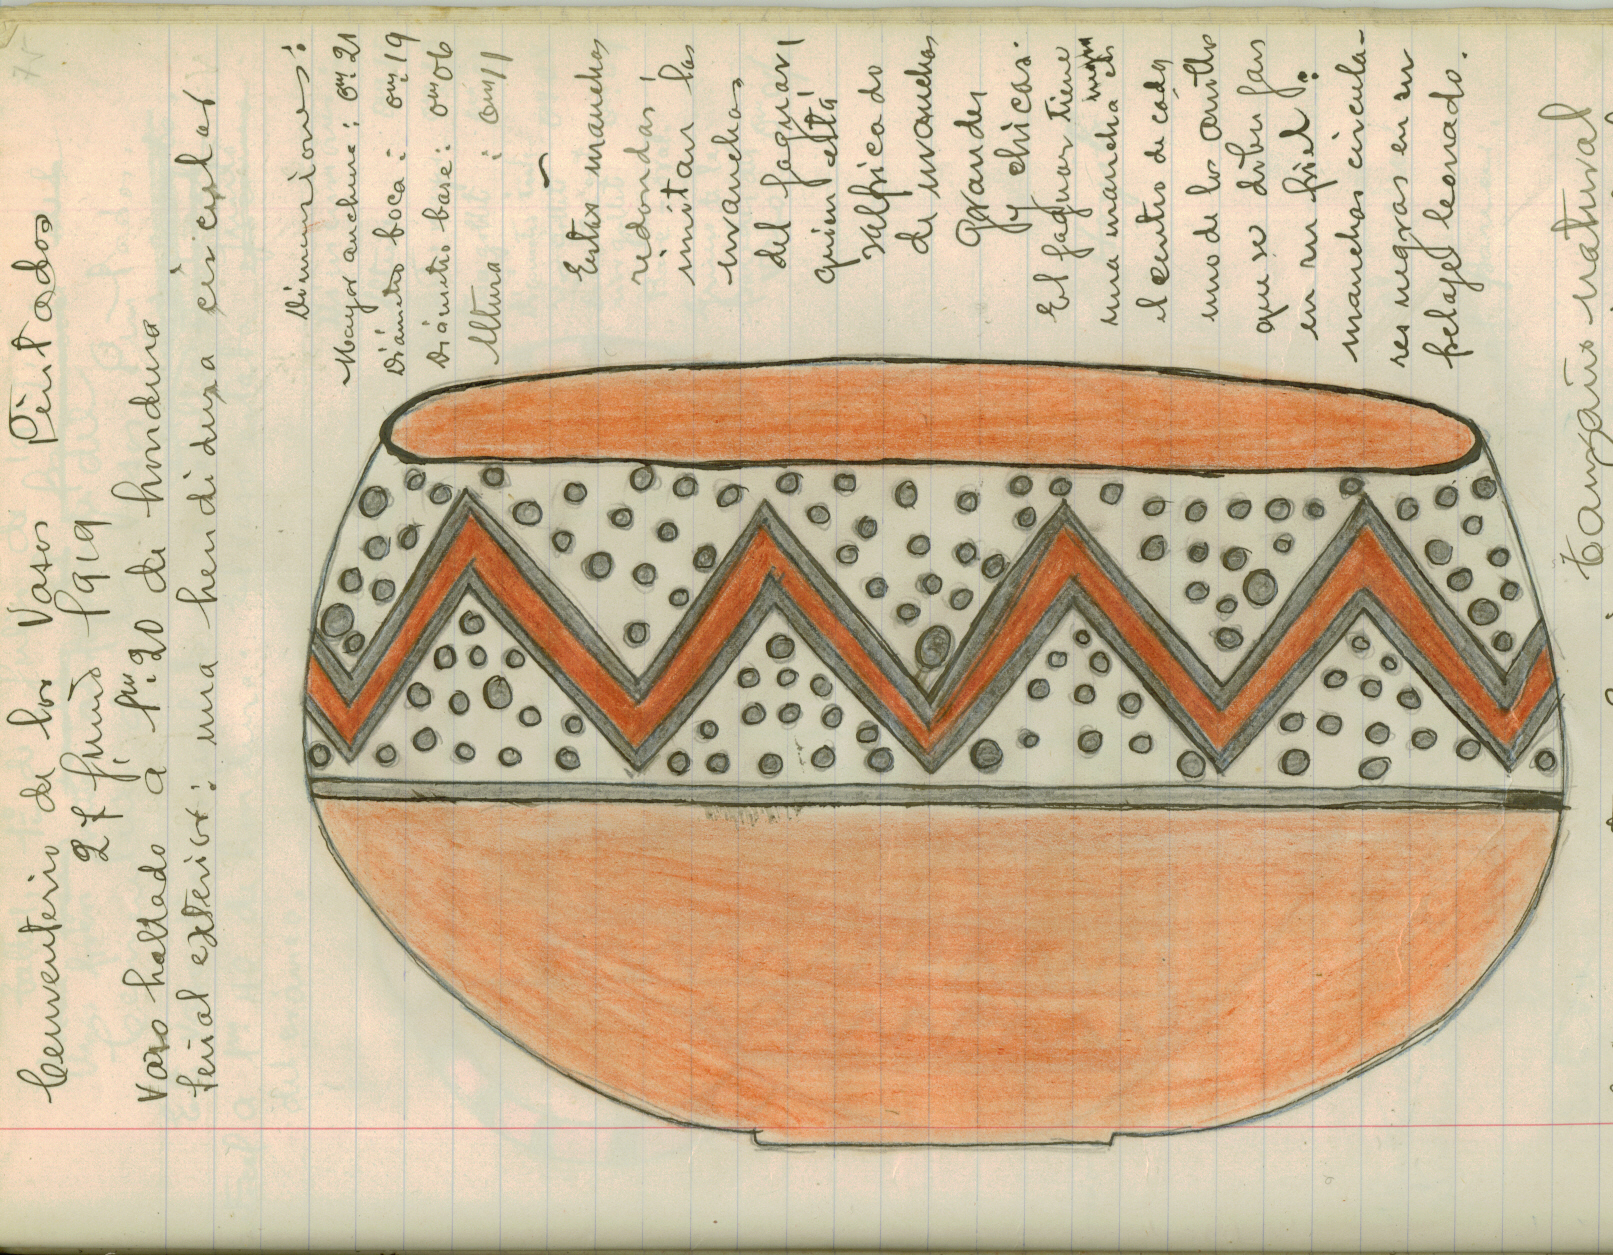 Cementerio de los Vasos Pintados
27 Junio 1919
Vaso hallado a 1m.20 de hondura
Señal exterior: una hendidura circular
Dimensiones:
Mayor anchura: 0m.21
Diámetro boca: 0m.19
Diámetro base: 0m06
Altura : 0m11
Estas manchas
redondas
imitan las
manchas
del jaguar
quien está
salpicado
de manchas
grandes
y chicas.
El jaguar tiene
una mancha negra en
el centro de cada
uno de los anillos
que se dibujan
en su piel:
manchas circula-
res negras en su
pelaje leonado.
tamaño natural